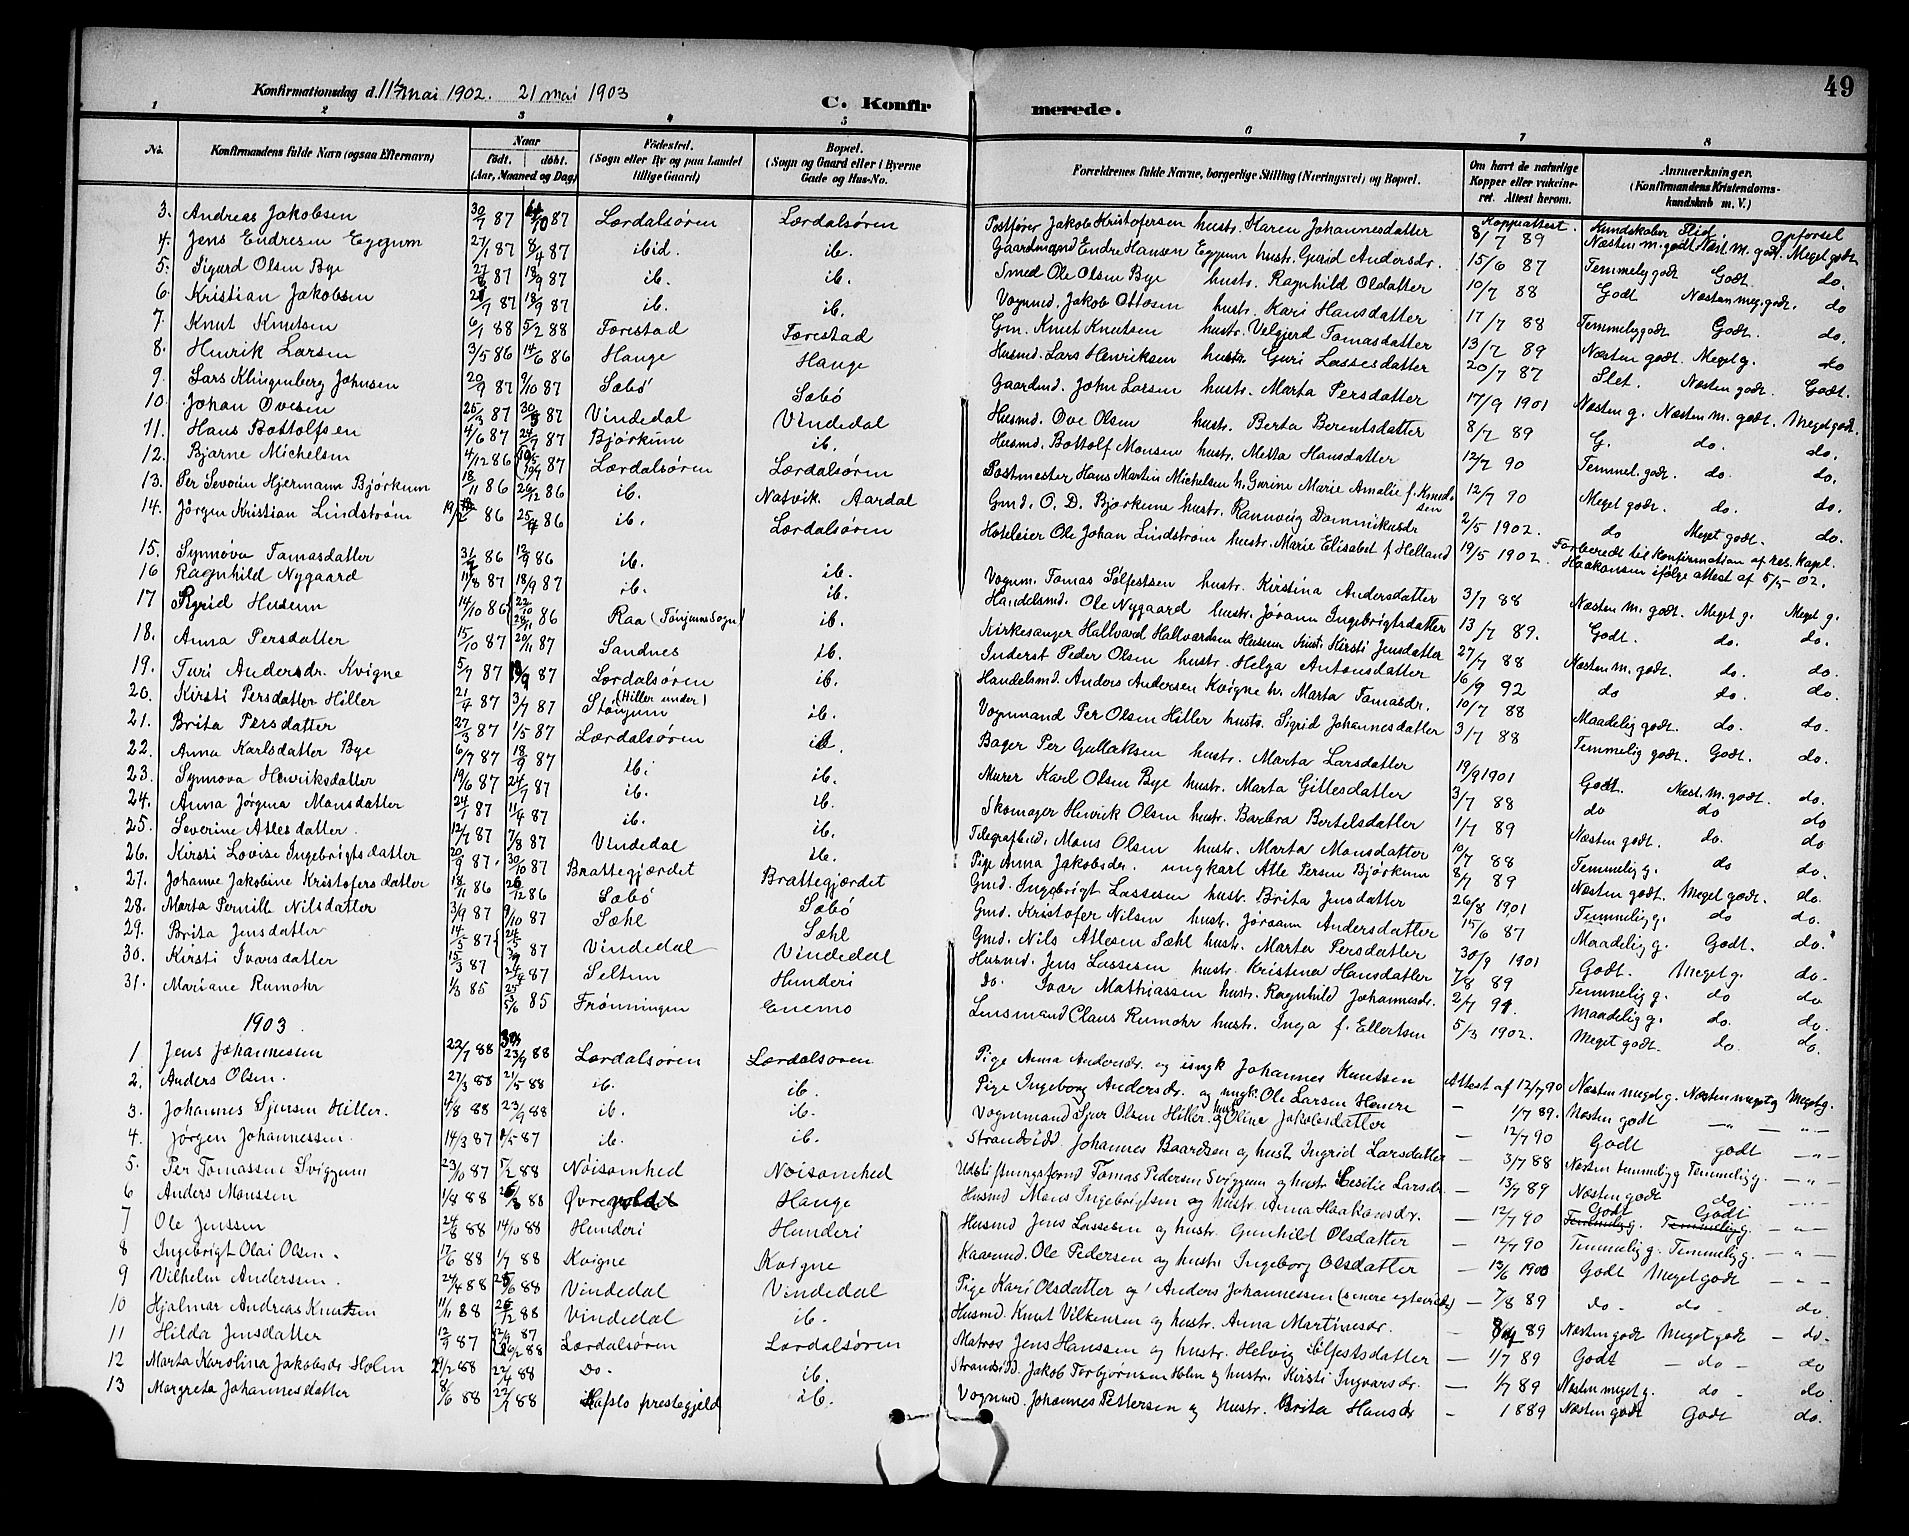 49
Konfirmationsdag d. 11te mai 1902. 21 mai 1903
C. Konfirmerede.
1 2 3 4 5 6 7 8
No. Konfirmandens fulde Navn (ogsaa Efternavn) Naar født. døbt. (Aar, Maaned og Dag) Fødested. (Sogn eller By og paa Landet tillige Gaard) Bopæl. (Sogn og Gaard eller i Byerne Gade og Hus-No. Forældrenes fulde Navne, borgerlige Stilling (Næringsvei) og Bopæl. Om havt de naturlige Kopper eller vakcineret. Attest herom. Anmærkninger. (Konfirmandens Kristendomskundskab m. V.)
Koppeattest. Kundskaber Flid. Opførsel
3. Andreas Jakobsen 30/7 87 87 Lærdalsøren Lærdalsøren Postfører Jakob Kristofersen hustr. Karen Johannesdatter 8/7 89 Næsten m. godt Næst. m. godt. Meget godt
4. Jens Endresen Eggum 27/1 87 8/4 87 ibid. ib. Gaardmand Endre Hansen Eggum hustr. Gurid Andersdr. 15/6 87 Temmelig godt Godt. do.
5. Sigurd Olsen Bye 87 18/9 87 ib. ib. Smed Ole Olsen Bye hustr. Ragnhild Oldatter 10/7 88 Godt Næsten meg. godt. do
6. Kristian Jakobsen 87 18/9 87 ib. ib. Vognmd. Jakob Ottosen hustr. Kari Hansdatter 17/7 88 Temmelig godt Godt. do.
7. Knut Knutsen 6/1 88 5/2 88 Færestad Færestad Gm. Knut Knutsen hustr. Velgjerd Tomasdatter 13/7 89 Næsten godt. Meget g. do
8. Henrik Larsen 3/5 86 14/6 86 Hauge Hauge Husmd. Lars Henriksen hustr. Guri Lassesdatter 20/7 87 Slet. Næsten godt. Godt.
9. Lars Klingenberg Johnsen 20/9 87 9/10 87 Sæbø Sæbø Gaardmd. John Larsen hustr. Marta Persdatter 17/9 1901 Næsten g. Næsten m. godt. Meget godt.
10. Johan Ovesen 25/3 87 87 Vindedal Vindedal Husmd. Ove Olsen hustr. Berta Berentsdatter 8/7 89 G. do. do.
11. Hans Bottolfsen 4/6 87 24/7 87 Bjørkum ib. Husmd. Bottolf Monsen hustr. Metta Hansdatter 12/7 90 Temmel. godt. do. do.
12. Bjarne Michelsen 4/12 86 87 Lærdalsøren Lærdalsøren Postmester Hans Martin Michelsen h. Gurine Marie Amalie f. Knudsen 12/7 90 Meget godt. do. do.
13. Per Severin Hjermann Bjørkum 18/11 86 26/12 86 ib. Natvik Aardal Gmd. O. D. Bjørkum hustr. Rannveig Dominikusdr 2/5 1902. do Meget godt. do.
14. Jørgen Kristian Lindstrøm 19/2 86 25/4 86 ib. Lærdalsøren Hoteleier Ole Johan Lindstrøm hustr. Marie Elisabet f. Helland 19/5 1902. Forberedt til Konfirmation af res. Kapel. Haakonsen ifølge attest af 5/5 02.
15. Synnøva Tomasdatter 86 12/9 86 ib. ib. Vognm. Tomas Sølfestsen hustr. Kirstina Andersdatter 3/7 88 Næsten m. godt. Meget g. Meget g.
16 Ragnhild Nygaard 11/8 87 18/9 87 ib. ib. Handelsmd. Ole Nygaard hustr. Jørann Ingebrigtsdatter 13/7 89. Godt. do. do.
17 Sigrid Husum 14/10 86 22/10 28/11 86 Raa (Tønjums Sogn) ib. Kirkesanger Hallvard Hallvardsen Husum hust. Kirsti Jensdatter 27/7 88 Næsten m. godt. do. do.
18. Anna Persdatter 15/10 87 20/11 87 Sandnes ib. Inderst Peder Olsen hustr. Helga Antonsdatter 16/9 92 do do. do.
19. Turi Andersdr. Kvigne 5/7 87 87 Lærdalsøren ib. Handelsmd. Anders Andersen Kvigne h. Marta Tomasdr. 10/7 88 Maadelig godt. do. do.
20. Kirsti Persdatter Hiller 21/4 87 3/7 87 (Hiller under) Stønjum ib. Vognmand Per Olsen Hiller hustr. Sigrid Johannesdatter 3/7 88 Temmelig godt. Godt. do.
21. Brita Persdatter 27/3 87 1/5 87 Lærdalsøren ib. Bager Per Gullaksen hustr. Marta Larsdatter 19/9 1901 Godt. Næst. m. godt. do.
22. Anna Karlsdatter Bye 6/7 87 18/9 87 ib. ib. Murer Karl Olsen Bye hustr. Marta Gittesdatter 3/7 88 do do do
23. Synnøva Henriksdatter 19/6 87 24/7 87 ib. ib. Skomager Henrik Olsen hustr. Barbra Bertelsdatter 1/7 89 Næsten godt. do. do
24. Anna Jørgina Monsdatter 24/1 87 11/4 87 ib. ib. Telegrafbud. Mons Olsen hustr. Marta Monsdatter 10/7 88 Temmelig g. do do.
25. Severine Atlesdatter. 12/7 87 7/8 87 Vindedal ib. Pige Anna Jakobsdr. ungkarl Atle Persen Bjørkum 8/7 89 Næsten godt. Meget godt. do.
26. Kirsti Lovise Ingebrigtsdatter 20/9 87. 30/10 87 Brattegjærdet Brattegjærdet Gmd. Ingebrigt Lassesen hustr. Brita Jensdatter 26/8 1901 Temmelig g. do do.
27. Johanne Jakobine Kristofersdatter 18/11 86 26/12 86 Sæbø Sæbø Gmd. Kristofer Nilsen hust. Jørann Andersdatter 15/6 87 Maadelig g. Godt. do.
28. Marta Pernille Nilsdatter 3/9 87 9/10 87 Sæhl Sæhl Gmd. Nils Atlesen Sæhl hustr. Marta Persdatter 30/9 1901 Godt. Meget g. do.
29. Brita Jensdatter 14/5 87 87 Vindedal Vindedal Husmd. Jens Lassesen hustr. Kristina Hansdatter 7/8 89 Temmelig g. do do
30. Kirsti Ivarsdatter 15/3 87 87 Seltun Hunderi Do. Ivar Mathiassen hustr. Ragnhild Johannesdr. 2/7 91 Maadelig g. do. do.
31. Mariane Rumohr 1/3 85 85 Frønningen Enemo Lensmand Claus Rumohr hustr. Inga f. Ellertsen 5/3 1902. Meget godt. do. do.
1903
1. Jens Johannessen 22/7 88 23/9 88 Lærdalsøren Lærdalsøren Pige Anna Andersdr. og ungk Johannes Knutsen Attest af 12/7 90 Næsten meget g. Næsten meget g Meget g.
2. Anders Olsen. 27/3 88 21/5 88 ib. ib. Pige Ingeborg Andersdr. og ungk. Ole Larsen Henere — 1/7 89. Næsten godt —„— —„—
3. Johannes Sjursen Hiller. 4/8 88 23/9 88 ib. ib. Vognmand Sjur Olsen Hiller og hust. Oline Jakobsdatter — 12/7 90 Godt godt —„—
4. Jørgen Johannessen. 14/3 87 87 ib. ib. Strandsidd Johannes Baardsen og hust Ingrid Larsdatter — 3/7 88 Næsten temmelig g Temmelig g. —„—
5. Per Tomassen Sviggum 23/10 87 5/2 88 Nøisomhed Nøisomhed Udskiftningsformd Tomas Pedersen Sviggum og hustr Cecilie Larsdr — 13/7 89 Næsten godt do —„—
6 Anders Monssen 1/8 88 88 Øvre Hauge Husmd Mons Ingebrigtsen og hustr. Anna Haakonsdr. — 12/7 90 Godt Godt —„—
7 Ole Jenssen 24/8 88 14/10 88 Hunderi Hunderi Husmd Jens Lassesen og hustr. Gunhild Olsdatter — 12/7 90 Temmelig g. Temmelig g. —„—
8 Ingebrigt Olai Olsen. 17/6 88 1/7 88 Kvigne Kvigne Kaarmd. Ole Pedersen og hustr. Ingeborg Olsdatter — 12/6 1900 Godt Meget godt —„—
9 Vilhelm Anderssen. 24/4 88 88 Vindedal Vindedal Pige Kari Olsdatter og Anders Johannessen (senere egtevied) — 7/8 89 do - do - do
10 Hjalmar Andreas Knutsen 11/11 88 26/12 88 Vindedal ib. Husmd. Knut Vilkensen og hustr. Anna Martinusdr. — 89 Næsten godt Meget godt — do-
11 Hilda Jensdatter 12/9 87 12/9 87 26/2 88 Lærdalsøren Lærdalsøren Matros Jens Hanssen og hustr. Helvig Sølfestsdatter — 1/7 89 Godt — do - do
12 Marta Karolina Jakobsdr Holm 88 22/4 88 Do. ib. Strandsidd. Jakob Torbjørnsen Holm og hustr. Kirsti Ingvarsdr. — 1/7 89 Næsten meget g. do - do
13 Margreta Johannesdatter 8/6 88 22/7 88 Hafslo prestegjeld ib. Vognmd. Johannes Pettersen og hustr. Brita Hansdr — 1889 Næsten godt Godt do.